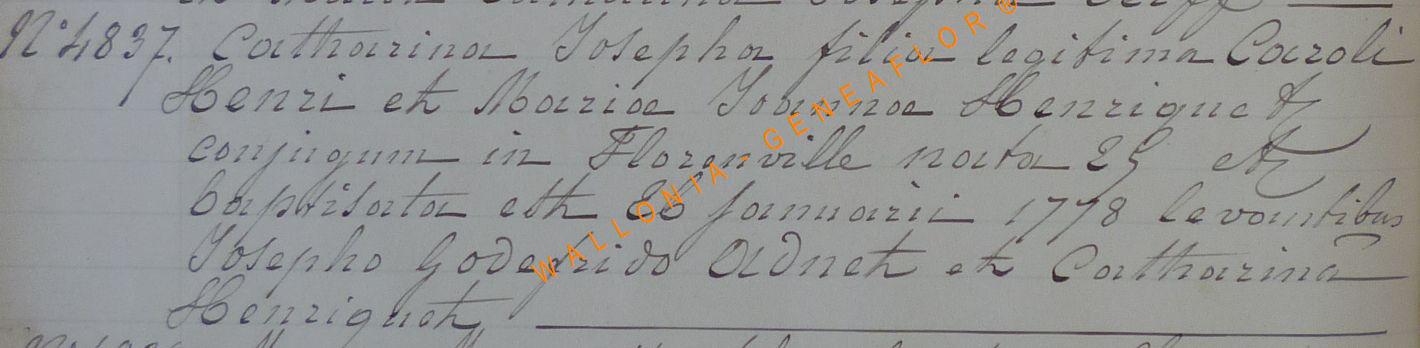 N° 4837. Catharina Josepha filia legitima Caroli
Henri et Mariae Joannae Henriquet
conjugum in Florenville nata 25 et
baptisata est 26 januarii 1778 levantibus
Josepho Godefrido Adnet et Catharina
Henriquet
WALLONIA - GENEAFLOR ®